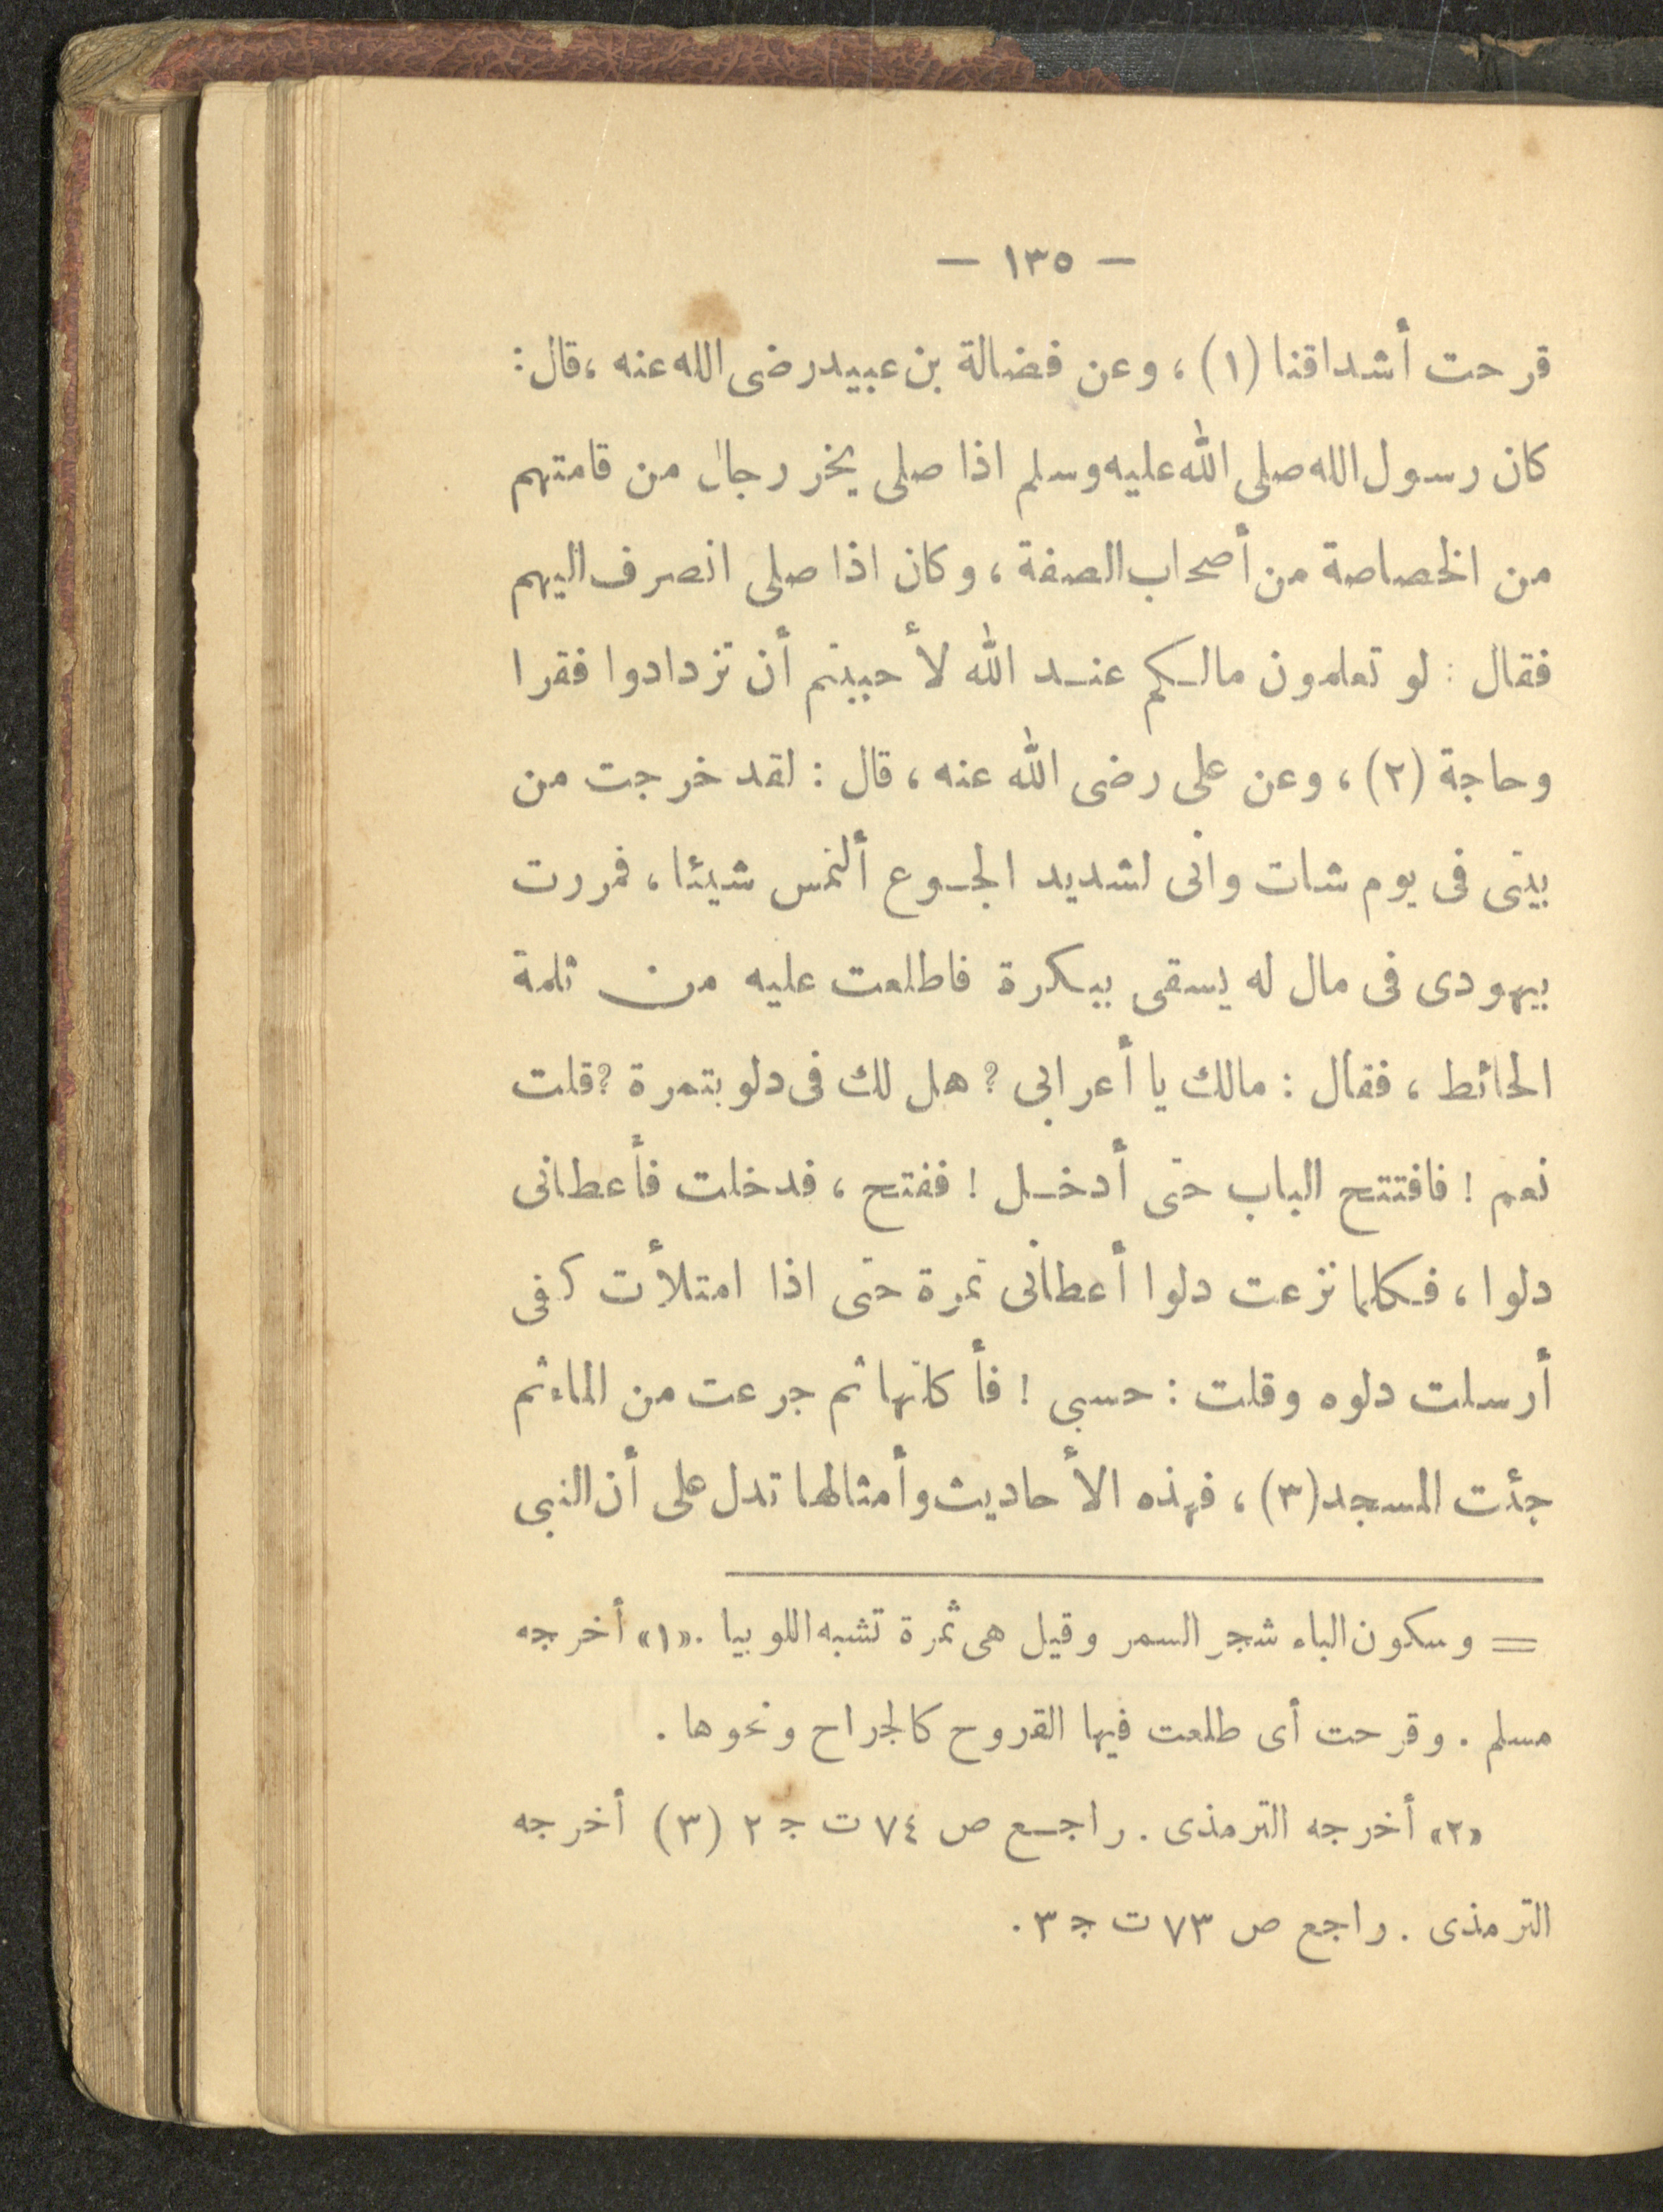 — ١٣٥ —
قرحت أشداقنا (١) ، وعن فضالة بن عبيد رضى الله عنه ، قال :
كان رسول الله صلى الله عليه وسلم اذا صلى يخر رجال من قامتهم
من الخصاصة من أصحاب الصفة ، وكان اذا صلى انصرف اليهم
فقال : لو تعلمون مالكم عند الله لأحببتم أن تزدادوا فقرا
وحاجة (٢) ، وعن على رضى الله عنه ، قال : لقد خرجت من
بيتى فى يوم شات وانى لشديد الجوع ألتمس شيئا ، فمررت
بيهودى فى مال له يسقى ببكرة فاطلعت عليه من ثلمة
الحائط ، فقال : مالك يا أعرابى ؟ هل لك فى دلو بتمرة ؟ قلت
نعم ! فافتتح الباب حتى أدخل ! ففتح ، فدخلت فأعطانى
دلوا ، فكلما نزعت دلوا أعطانى تمرة حتى اذا امتلأت كفى
أرسلت دلوه وقلت : حسبى ! فأكلتها ثم جرعت من الماء ثم
جئت المسجد (٣) ، فهذه الأحاديث وأمثالها تدل على أن النبى
= وسكون الباء شجر السمر وقيل هى ثمرة تشبه اللوبيا . «١» أخرجه
مسلم . وقرحت أى طلعت فيها القروح كالجراح ونحوها .
«٢» أخرجه الترمذى . راجع ص ٧٤ ت ج ٢ (٣) أخرجه
الترمذى . راجع ص ٧٣ ت ج ٣ .